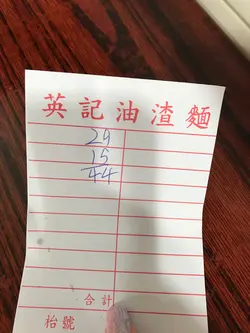 英記油渣麵
29
15
44
合計
枱號